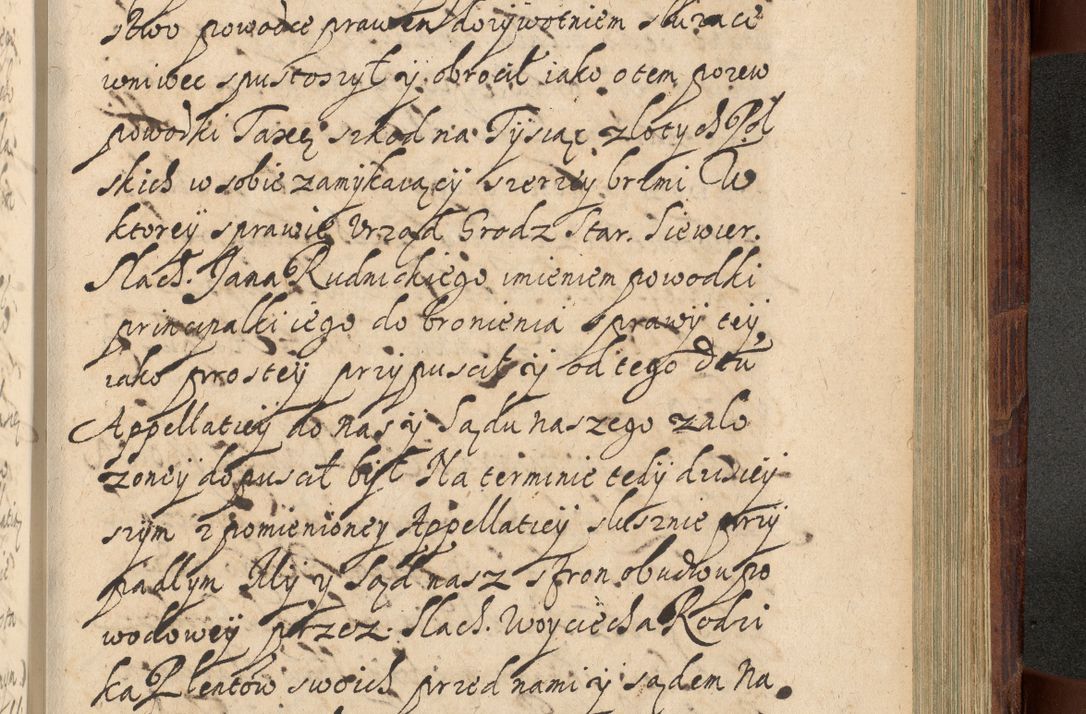 stwo powodce prawem dozywotniem sluzące
wniwec spustoszył y obrocił iako otem pozew
powodki Taxę szkod na Tysiąc złotych Pol
skich w sobie zamykaiącÿ szerzey brzmi W
ktoreÿ sprawie Vrząd Grodz Star. Siewier.
Slach. Jana Rudnickiego imieniem powodki
principalki iego do bronienia sprawÿ teÿ
iako prosteÿ przypuscił ÿ od tego dttu
Appellatieÿ do nas ÿ Sądu naszego zało
zoneÿ dopuscił bÿł Na terminie tedÿ dzisieÿ
szym z pomienioneÿ Appellatieÿ slusznie przÿ
padłym Mÿ ÿ Sąd nasz stron obudwu po
wodoweÿ przez Slach. Woyciecha Rodzi
ka Plentow swoich przed nami ÿ sądem na